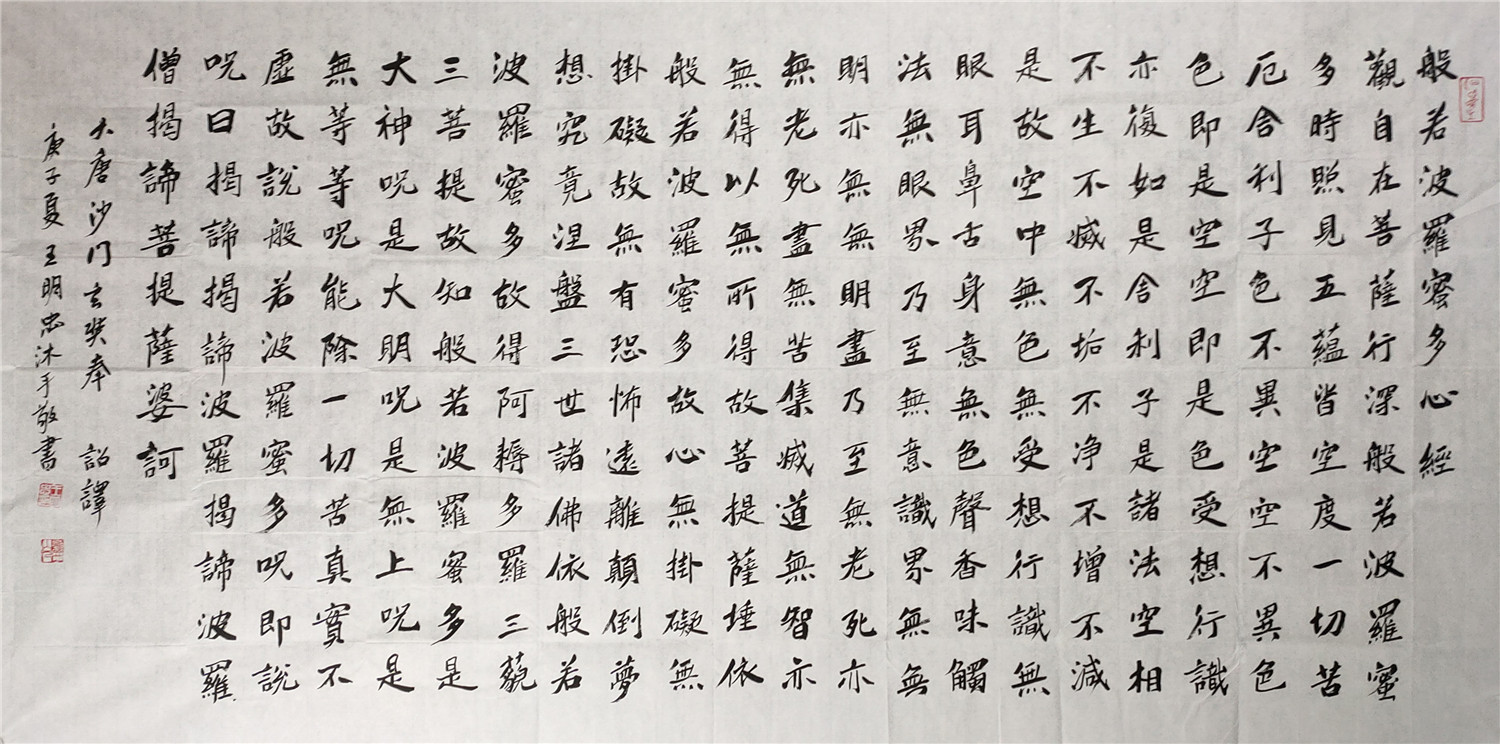 般若波羅蜜多心經
觀自在菩薩行深般若波羅蜜
多時照見五蘊皆空度一切苦
厄舍利子色不異空空不異色
色即是空空即是色受想行識
亦復如是舍利子是諸法空相
不生不滅不垢不净不增不減
是故空中無色無受想行識無
眼耳鼻舌身意無色聲香味觸
法無眼界乃至無意識界無無
明亦無無明盡乃至無老死亦
無老死盡無苦集滅道無智亦
無得以無所得故菩提薩埵依
般若波羅蜜多故心無掛礙無
掛礙故無有恐怖遠離顛倒夢
想究竟涅盤三世諸佛依般若
波羅蜜多故得阿耨多羅三藐
三菩提故知般若波羅蜜多是
大神呪是大明呪是無上呪是
無等等呪能除一切苦真實不
虛故說般若波羅蜜多呪即說
呪曰揭諦揭諦波羅揭諦波羅
僧揭諦菩提薩婆訶
大唐沙门玄奘奉 詔譯
庚子夏王明忠沐手敬書